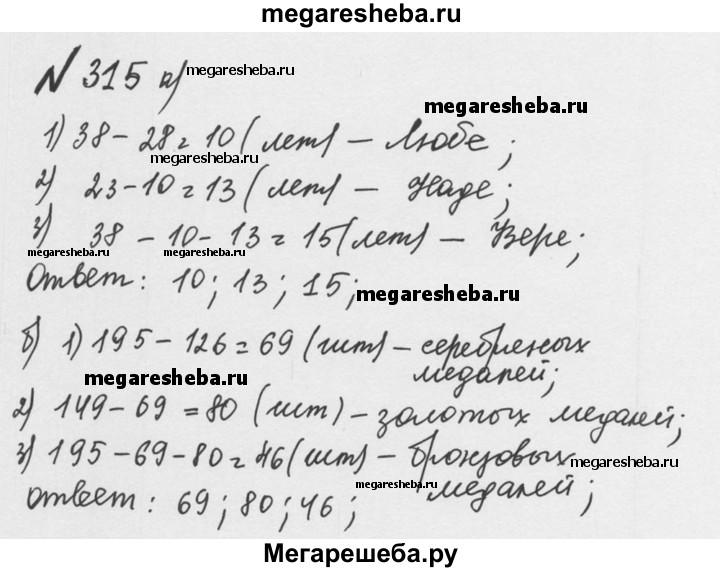 megaresheba.ru
N 315 а) megaresheba.ru
megaresheba.ru
1) 38-28=10 (лет) - Любе;
megaresheba.ru
2) 23-10=13 (лет) - Наде;
3) 38-10-13=15 (лет) - Вере;
megaresheba.ru megaresheba.ru
Ответ: 10; 13; 15;
megaresheba.ru
б) 1) 195-126=69 (шт) - серебреных
медалей;
megaresheba.ru
2) 149-69=80 (шт) - золотых медалей;
3) 195-69-80=46 (шт) - бронзовых
megaresheba.ru
медалей;
megaresheba.ru
Ответ: 69; 80; 46;
Мегарешеба.ру